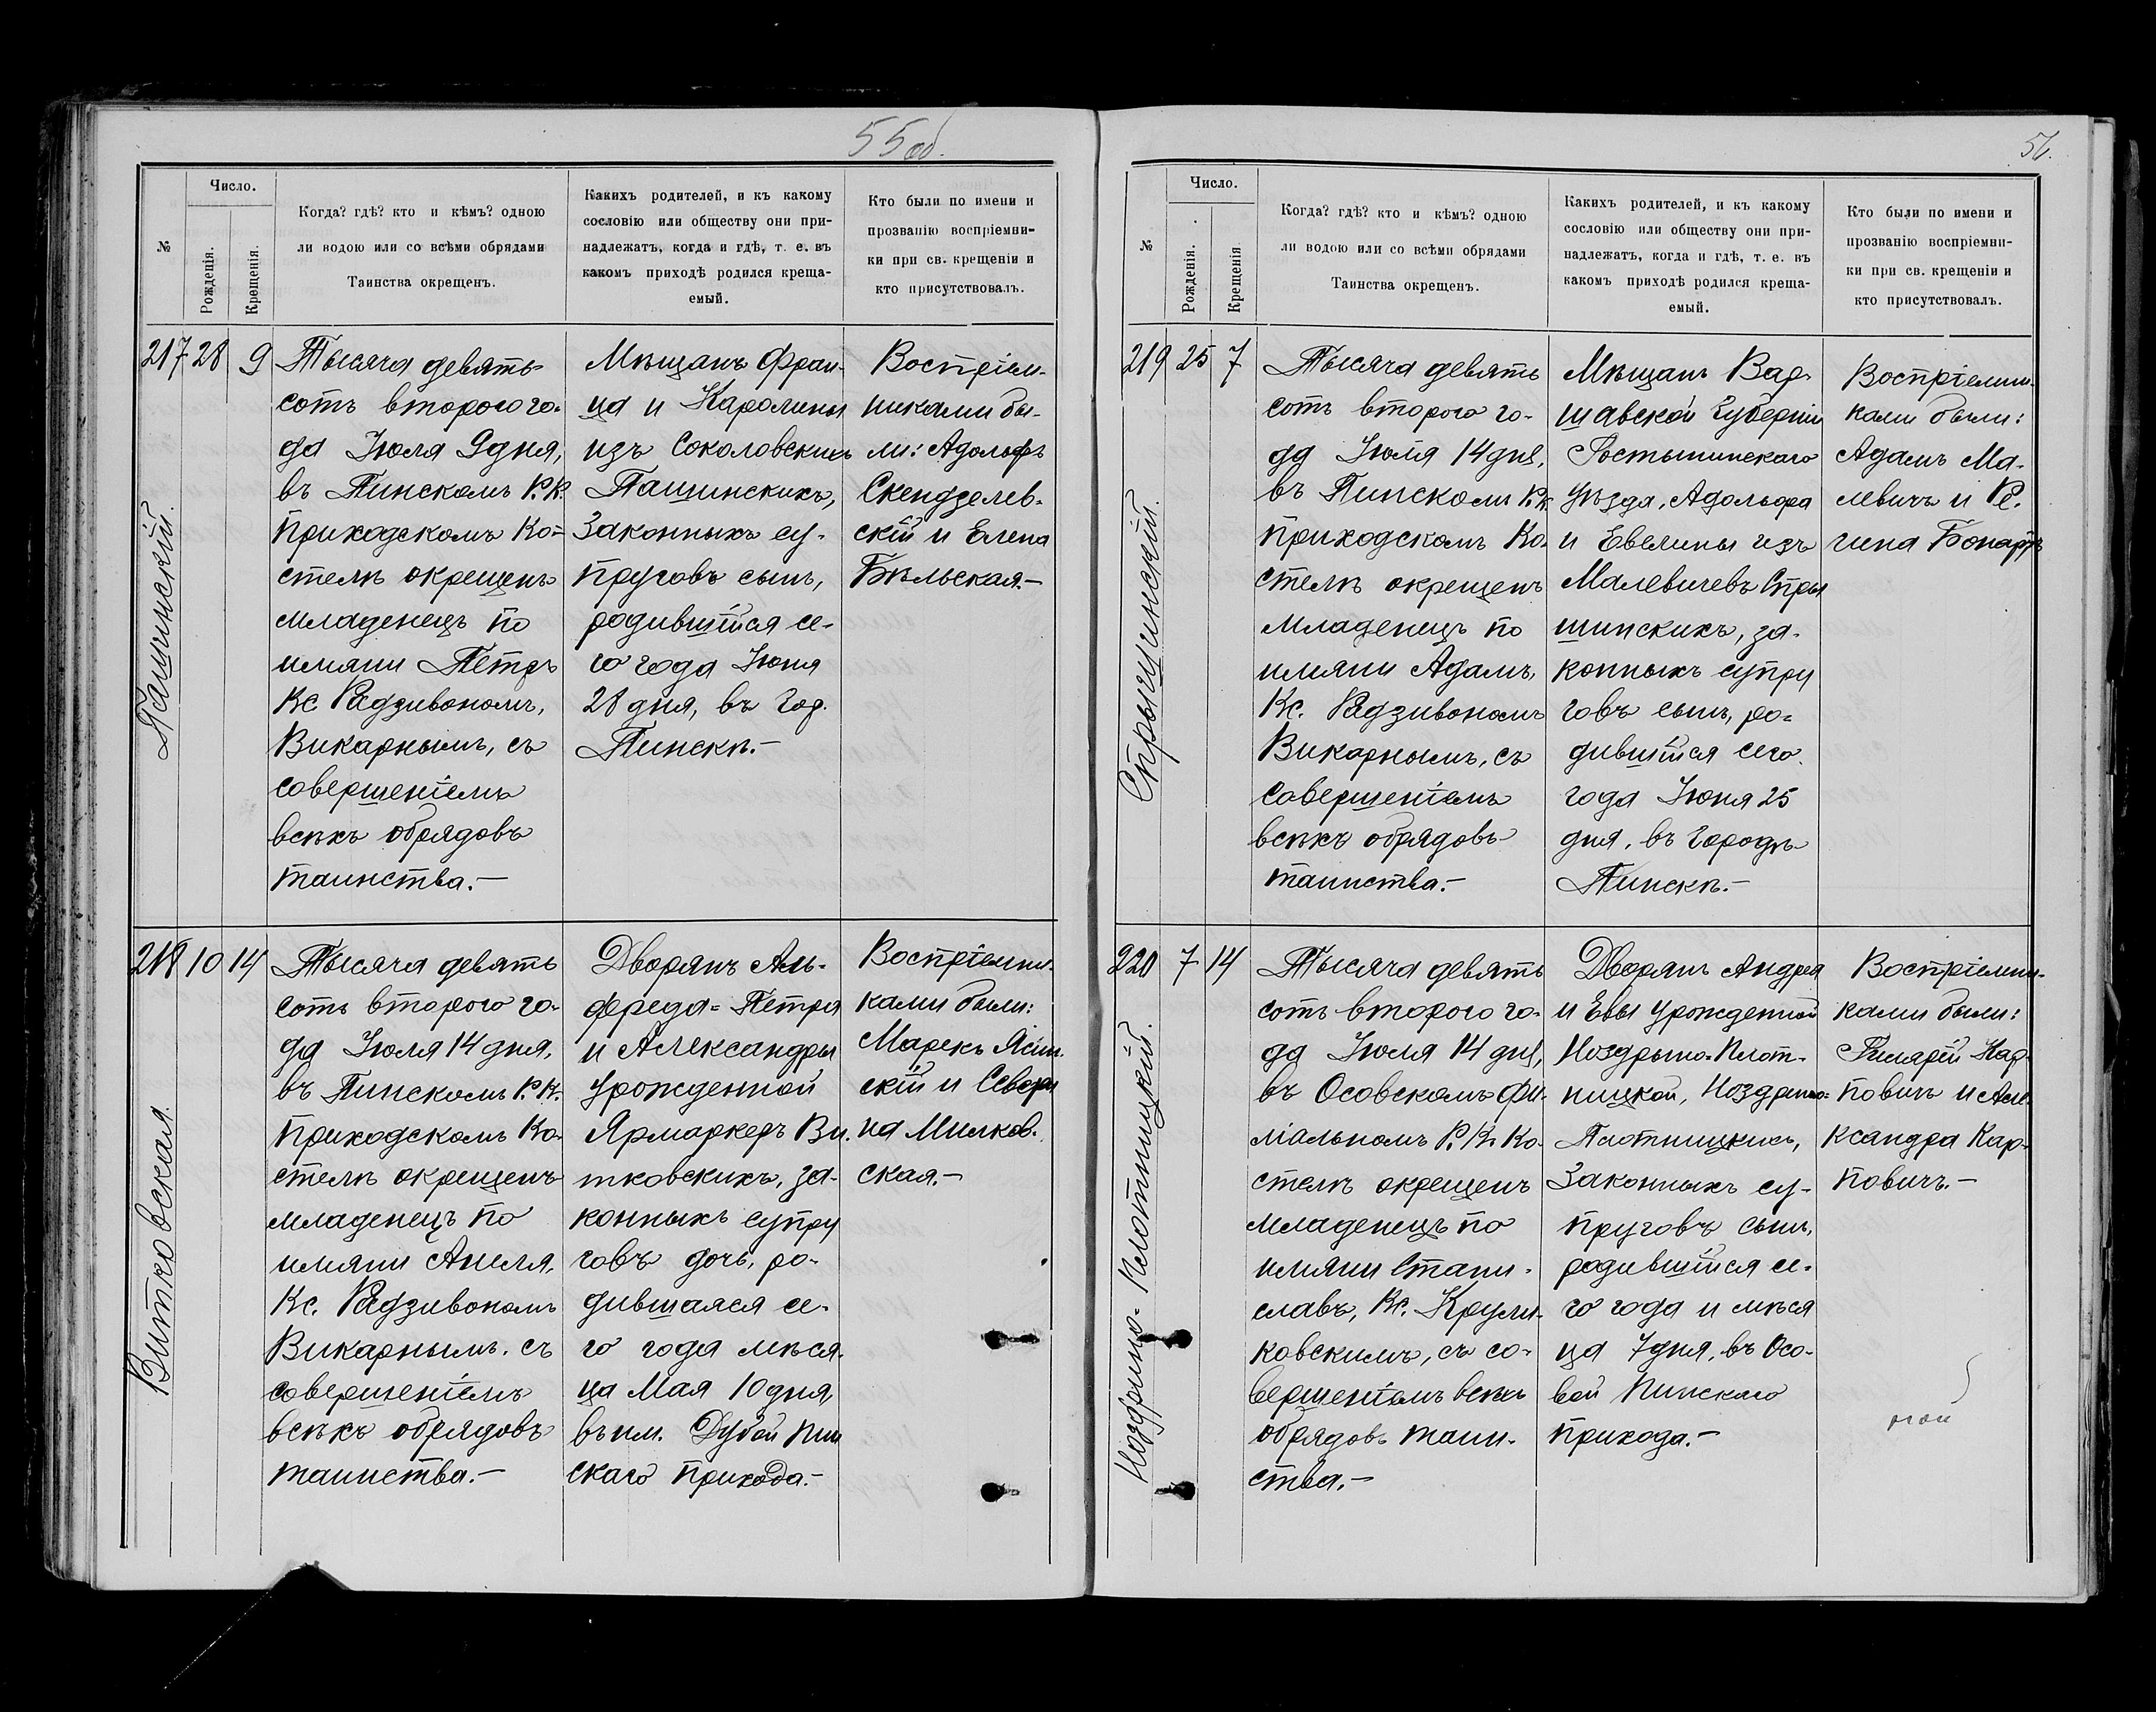 55 об.
№
Число.
Рожденія.
Крещенія.
Когда? гдѣ? кто и кѣмъ? одною
ли водою или со всѣми обрядами
Таинства окрещенъ.
Какихъ родителей, и къ какому
сословію или обществу они при-
надлежатъ, когда и гдѣ, т. е. въ
какомъ приходѣ родился креща-
емый.
Кто были по имени и
прозванію воспріемни-
ки при св. крещеніи и
кто присутствовалъ.
217 28 9
Пашинскій.
Тысяча девять
сотъ второго го-
да Іюля 9 дня,
въ Пинскомъ Р. К.
Приходскомъ Ко-
стелѣ окрещенъ
младенецъ по
имяни Петръ
Кс. Радзивономъ,
Викарнымъ, съ
совершеніемъ
всѣхъ обрядовъ
таинства.—
Мѣщанъ Фран-
ца и Каролины
изъ Соколовскихъ
Пашинскихъ,
Законныхъ су-
пруговъ сынъ,
родившійся се-
го года Іюня
28 дня, въ гор.
Пинскѣ.—
Воспріем-
никами бы-
ли: Адольфъ
Скендзелев-
скій и Елена
Бѣльская.—
218 10 14
Витковская.
Тысяча девять
сотъ второго го-
да Іюля 14 дня,
въ Пинскомъ Р. К.
Приходскомъ Ко-
стелѣ окрещенъ
младенецъ по
имяни Анеля,
Кс. Радзивономъ
Викарнымъ, съ
совершеніемъ
всѣхъ обрядовъ
таинства.—
Дворянъ Аль-
фреда=Петра
и Александры
Урожденной
Ярмаркеръ Ви-
тковскихъ, за-
конныхъ супру
говъ дочь, ро-
дившаяся се-
го года мѣся-
ца Мая 10 дня,
въ им. Дубой Пин
скаго прихода.—
Воспріемни-
ками были:
Марекъ
скій и Севери
на Милков-
ская.—
56.
№
Число.
Рожденія.
Крещенія
Когда? гдѣ? кто и кѣмъ? одною
ли водою или со всѣми обрядами
Таинства окрещенъ.
Какихъ родителей, и къ какому
сословію или обществу они при-
надлежатъ, когда и гдѣ, т. е. въ
какомъ приходѣ родился креща-
емый.
Кто были по имени и
прозванію воспріемни-
ки при св. крещеніи и
кто присутствовалъ.
219 25 7
Спрышинскій.
Тысяча девять
сотъ второго го-
да Іюля 14 дня,
въ Пинскомъ Р. К.
Приходскомъ Ко-
стелѣ окрещенъ
младенецъ по
имяни Адамъ,
Кс. Радзивономъ
Викарнымъ, съ
совершеніемъ
всѣхъ обрядовъ
таинства.—
Мѣщанъ Вар-
шавской Губерніи
Гостынинскаго
Уѣзда, Адольфа
и Евелины изъ
Малевичевъ Спры
шинскихъ, за-
конныхъ супру
говъ сынъ, ро-
дившійся сего
года Іюня 25
дня, въ городѣ
Пинскѣ.—
Воспріемни-
ками были:
Адамъ Ма-
левичъ и Ре-
гина Бонартъ
220 7 14
Ноздрино-Плотницкій.
Тысяча девять
сотъ второго го-
да Іюля 14 дня,
въ Осовскомъ фи-
ліальномъ Р. К. Ко-
стелѣ окрещенъ
младенецъ по
имяни Стани-
славъ, Кс. Крули-
ковскимъ, съ со-
вершеніемъ всѣхъ
обрядовъ таин-
ства.—
Дворянъ Андрея
и Евы урожденной
Ноздрыно-Плот-
ницкой, Ноздрино-
Плотницкихъ,
Законныхъ су-
пруговъ сынъ,
родившійся се-
го года и мѣся
ца 7 дня, въ Осо-
вой Пинскаго
прихода.—
Воспріемни-
ками были:
Кар-
повичъ и Але-
ксандра Кар-
повичъ.—